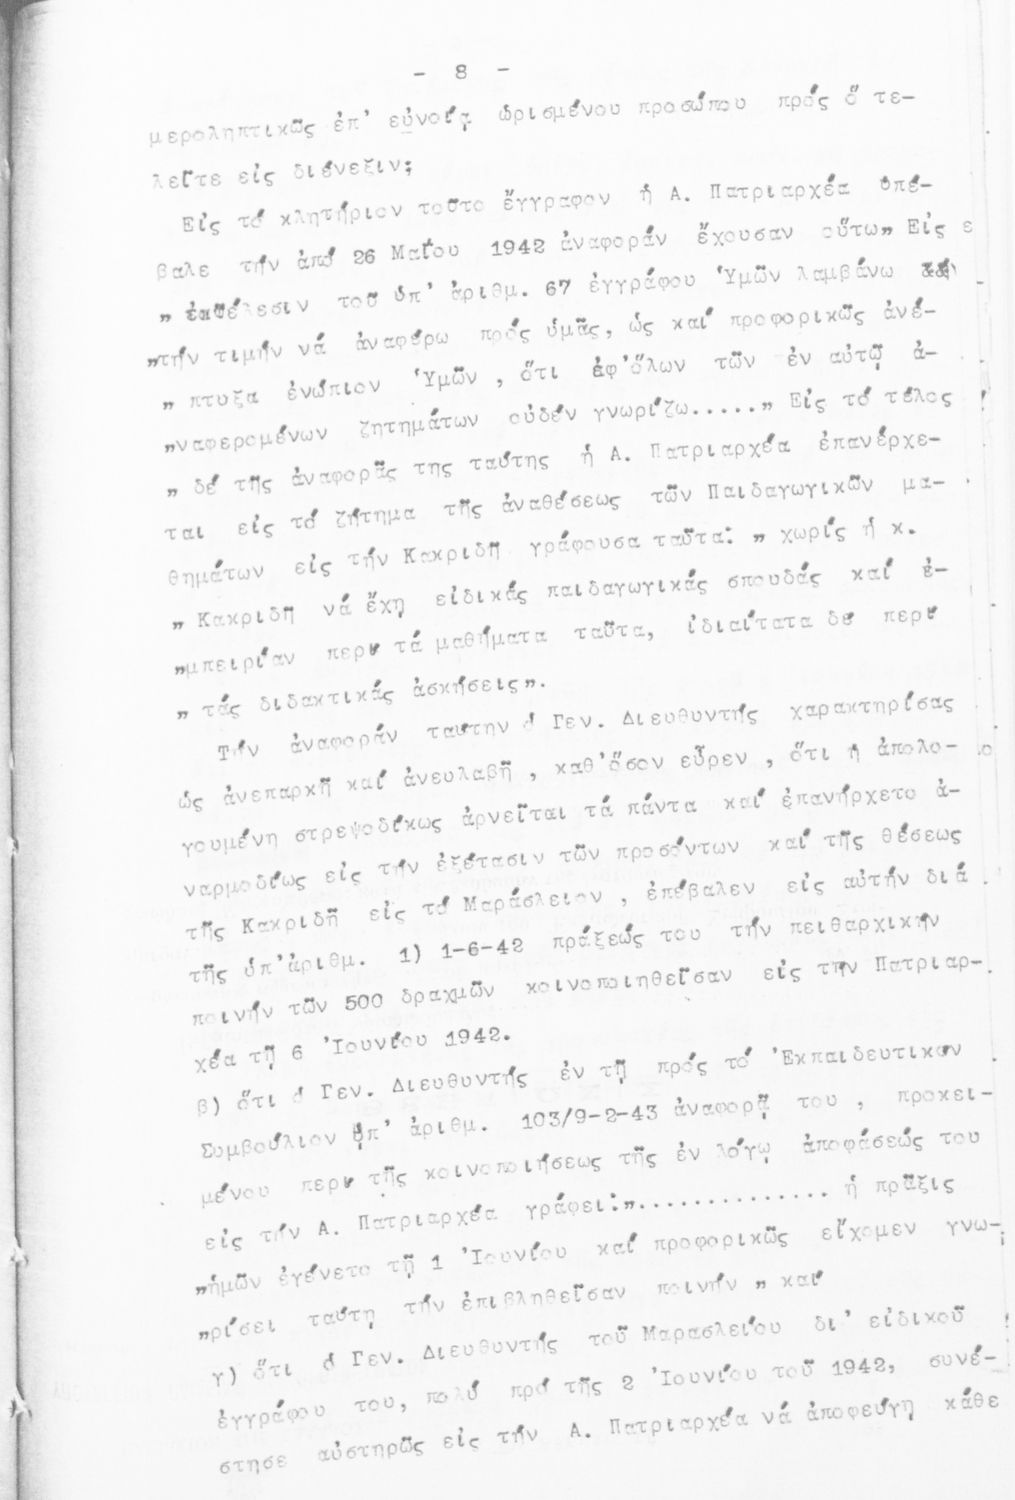 - 8 -
μεροληπτικῶς ἐπ' εὐνοίᾳ ὡρισμένου προσώπου πρός ὅ τε-
λεῖτε εἰς διένεξιν;
Εἰς τό κλητήριον τοῦτο ἔγγραφον ἡ Α. Πατριαρχέα ὑπέ-
βαλε τήν ἀπό 26 Μαΐου 1942 ἀναφοράν ἔχουσαν οὕτω„ Εἰς ε
„ ἐκτέλεσιν τοῦ ὑπ' ἀριθμ. 67 ἐγγράφου Ὑμῶν λαμβάνω
„τήν τιμήν νά ἀναφέρω πρός ὑμᾶς, ὡς καί προφορικῶς ἀνέ-
„ πτυξα ἐνώπιον Ὑμῶν , ὅτι ἐφ'ὅλων τῶν ἐν αὐτῷ ἀ-
„ναφερομένων ζητημάτων οὐδέν γνωρίζω.....„ Εἰς τό τέλος
„ δέ τῆς ἀναφορᾶς της ταύτης ἡ Α. Πατριαρχέα ἐπανέρχε-
ται εἰς τό ζήτημα τῆς ἀναθέσεως τῶν Παιδαγωγικῶν μα-
θημάτων εἰς τήν Κακριδῆ γράφουσα ταῦτα: „ χωρίς ἡ κ.
„ Κακριδῆ νά ἔχῃ εἰδικάς παιδαγωγικάς σπουδάς καί ἐ-
„μπειρίαν περί τά μαθήματα ταῦτα, ἰδιαίτατα δέ περί
„ τάς διδακτικάς ἀσκήσεις„.
Τήν ἀναφοράν ταύτην ὁ Γεν. Διευθυντής χαρακτηρίσας
ὡς ἀνεπαρκῆ καί ἀνευλαβῆ , καθ'ὅσον εὗρεν , ὅτι ἡ ἀπολο-
γουμένη στρεψοδίκως ἀρνεῖται τά πάντα καί ἐπανήρχετο ἀ-
ναρμοδίως εἰς τήν ἐξέτασιν τῶν προσόντων καί τῆς θέσεως
τῆς Κακριδῆ εἰς τό Μαράσλειον , ἐπέβαλεν εἰς αὐτήν διά
τῆς ὑπ'ἀριθμ. 1) 1-6-42 πράξεώς του τήν πειθαρχικήν
ποινήν τῶν 500 δραχμῶν κοινοποιηθεῖσαν εἰς την Πατριαρ-
χέα τῇ 6 Ἰουνίου 1942.
β) ὅτι ὁ Γεν. Διευθυντής ἐν τῇ πρός τό Ἐκπαιδευτικόν
Συμβούλιον ὑπ' ἀριθμ. 103/9-2-43 ἀναφορᾷ του , προκει-
μένου περί τῆς κοινοποιήσεως τῆς ἐν λόγῳ ἀποφάσεώς του
εἰς τήν Α. Πατριαρχέα γράφει:„.............. ἡ πρᾶξις
„ἡμῶν ἐγένετο τῇ 1 Ἰουνίου καί προφορικῶς εἴχομεν γνω-
„ρίσει ταύτῃ τήν ἐπιβληθεῖσαν ποινήν „ καί
γ) ὅτι ὁ Γεν. Διευθυντής τοῦ Μαρασλείου δι' εἰδικοῦ
ἐγγράφου του, πολύ πρό τῆς 2 Ἰουνίου τοῦ 1942, συνέ-
στησε αὐστηρῶς εἰς τήν Α. Πατριαρχέα νά ἀποφεύγῃ κάθε